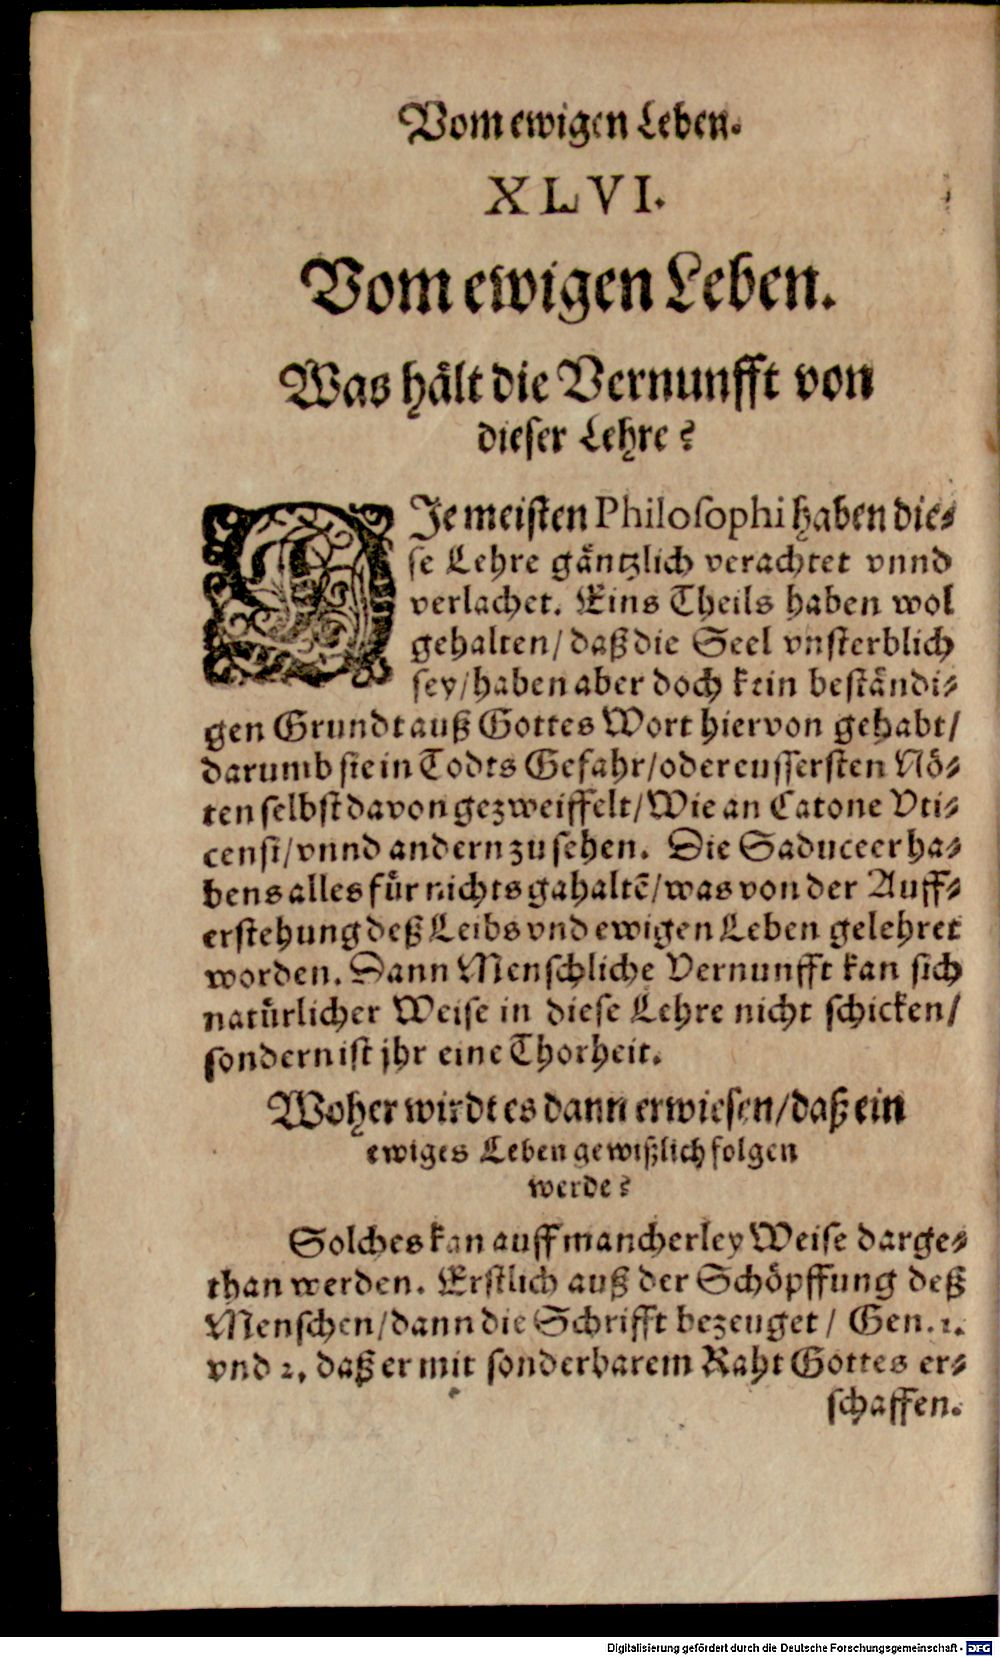 Vom ewigen Leben.
XLVI.
Vom ewigen Leben.
Was hält die Vernunfft von
dieser Lehre?
DIe meisten Philosophi haben die-
se Lehre gäntzlich verachtet vnnd
verlachet. Eins Theils haben wol
gehalten/ daß die Seel vnsterblich
sey/ haben aber doch kein beständi-
gen Grundt auß Gottes Wort hiervon gehabt/
darumb sie in Todts Gefahr/ oder eussersten Nö-
ten selbst davon gezweiffelt/ Wie an Catone Vti-
censi/ vnnd andern zu sehen. Die Saduceer ha-
bens alles für nichts gahaltē/ was von der Auff-
erstehung deß Leibs vnd ewigen Leben gelehret
worden. Dann Menschliche Vernunfft kan sich
natürlicher Weise in diese Lehre nicht schicken/
sondern ist jhr eine Thorheit.
Woher wirdt es dann erwiesen/ daß ein
ewiges Leben gewißlich folgen
werde?
Solches kan auff mancherley Weise darge-
than werden. Erstlich auß der Schöpffung deß
Menschen/ dann die Schrifft bezeuget/ Gen. 1.
vnd 2. daß er mit sonderbarem Raht Gottes er-
schaffen.
Digitalisierung gefördert durch die Deutsche Forschungsgemeinschaft - DFG